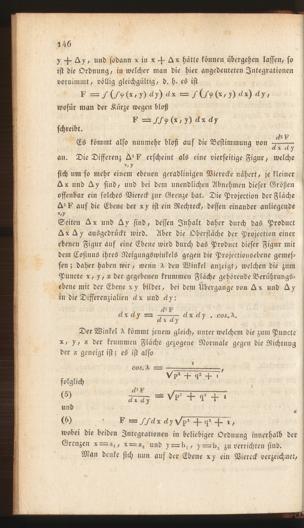 146
y + Δy, und sodann x in x + Δx hätte können übergehen lassen, so
ist die Ordnung, in welcher man die hier angedeuteten Integrationen
vornimmt, völlig gleichgültig, d. h. es ist
F = ∫ (∫φ(x, y) dy) dx = ∫ (∫φ(x, y) dx) dy,
wofür man der Kürze wegen bloß
F = ∫∫φ (x, y) dx dy
schreibt.
Es kömmt also nunmehr bloß auf die Bestimmung von d²F / dx dy
an. Die Differenz Δ²F erscheint als eine vierseitige Figur, welche
x,y
sich um so mehr einem ebenen geradlinigen Vierecke nähert, je kleiner
Δx und Δy sind, und bei dem unendlichen Abnehmen dieser Größen
offenbar ein solches Viereck zur Grenze hat. Die Projection der Fläche
Δ²F auf die Ebene der xy ist ein Rechteck, dessen einander anliegende
x,y
Seiten Δx und Δy sind, dessen Inhalt daher durch das Product
Δx Δy ausgedrückt wird. Aber die Oberfläche der Projection einer
ebenen Figur auf eine Ebene wird durch das Product dieser Figur mit
dem Cosinus ihres Neigungswinkels gegen die Projectionsebene gemes-
sen; daher haben wir, wenn λ den Winkel anzeigt, welchen die zum
Puncte x, y, z der gegebenen krummen Fläche gehörende Berührungs-
ebene mit der Ebene xy bildet, bei dem Übergange von Δx und Δy
in die Differenzialien dx und dy:
dx dy = d²F / dx dy dx dy . cos. λ.
Der Winkel λ kömmt jenem gleich, unter welchem die zum Puncte
x, y, z der krummen Fläche gezogene Normale gegen die Richtung
der z geneigt ist; es ist also
cos. λ = 1 / √p² + q² + 1,
folglich
(5) d²F / dx dy = √p² + q² + 1
und
(6) F = ∫∫ dx dy √p² + q² + 1,
wobei die beiden Integrationen in beliebiger Ordnung innerhalb der
Grenzen x = a₁, x = a₂ und y = b₁, y = b₂ zu verrichten sind.
Man denke sich nun auf der Ebene xy ein Viereck verzeichnet,